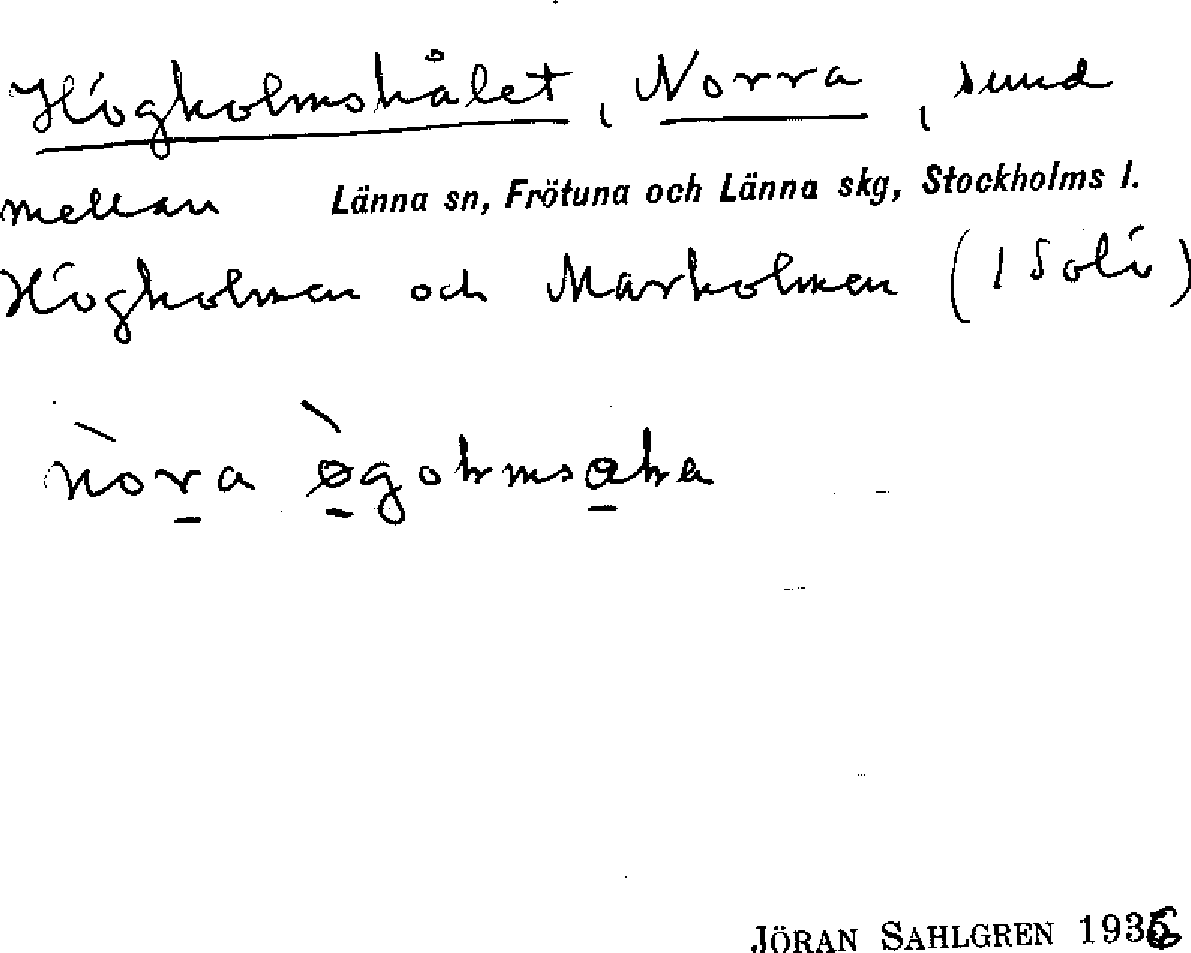 Högholmshålet, Norra, sund
mellan Länna sn, Frötuna och Länna skg, Stockholms l.
Högholmen och Marholmen (1 Solö)
nòra ø̀gohmsaha
JÖRAN SAHLGREN 1936